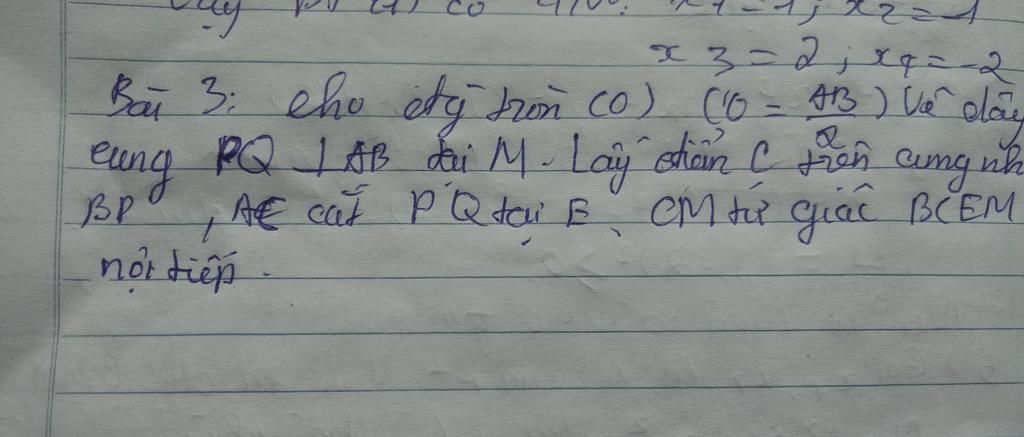 x1 = 1; x2 = -1
x3 = 2; x4 = -2
Bài 3: cho đg tròn (O) (O = AB/2) Vẽ dây
cung PQ ⊥ AB tại M. Lấy điểm C trên cung nh
BP, AC cắt PQ tại E, CM tứ giác BCEM
nội tiếp.